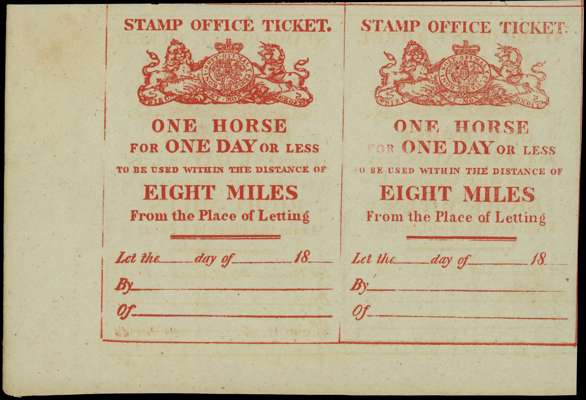 STAMP OFFICE TICKET.
ONE HORSE
FOR ONE DAY OR LESS
TO BE USED WITHIN THE DISTANCE OF
EIGHT MILES
From the Place of Letting
Let the day of 18
By
Of
STAMP OFFICE TICKET.
ONE HORSE
FOR ONE DAY OR LESS
TO BE USED WITHIN THE DISTANCE OF
EIGHT MILES
From the Place of Letting
Let the day of 18
By
Of